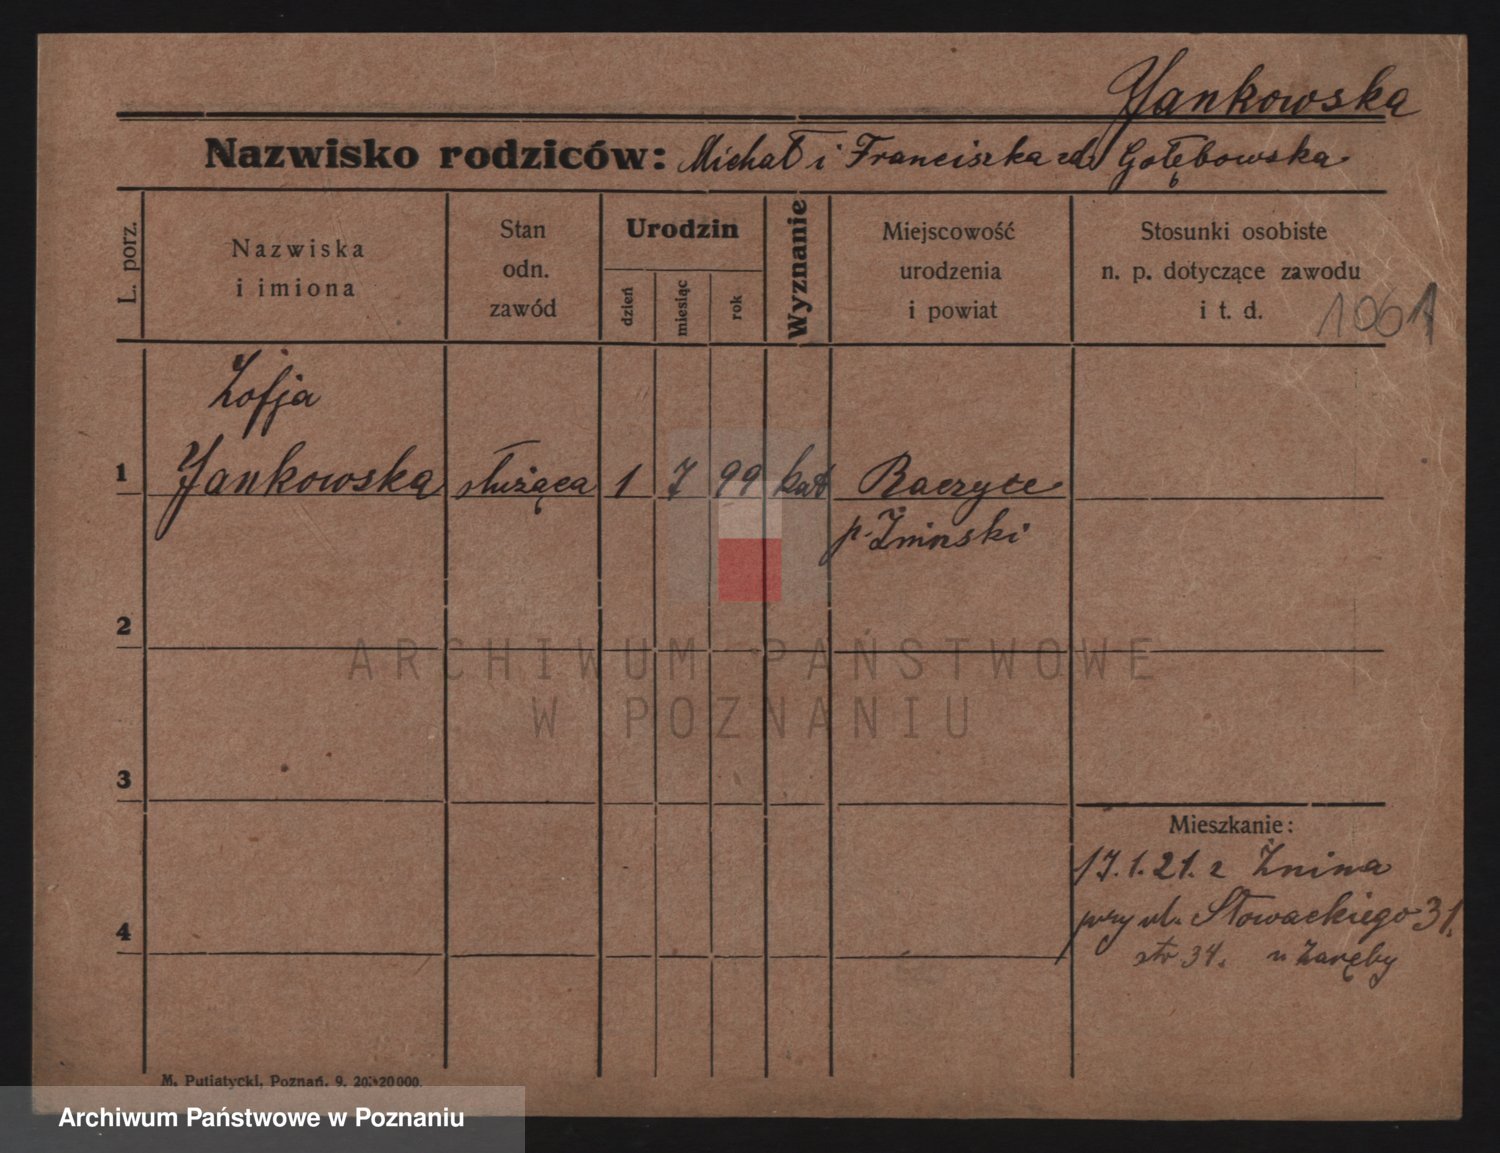 Jankowska
Nazwisko rodziców: Michał i Franciszka zd. Gołębowska
L. porz.
Nazwiska
i imiona
Stan
odn.
zawód
Urodzin
dzień
miesiąc
rok
Wyznanie
Miejscowość
urodzenia
i powiat
Stosunki osobiste
n. p. dotyczące zawodu
i t. d.
1061
Zofja
1 Jankowska służąca 1 7 99 kat Raczyce
p. Żninski
2
ARCHIWUM PAŃSTWOWE
W POZNANIU
3
Mieszkanie:
17.1.21. z Żnina
przy ul. Słowackiego 31.
4
str 34. u Zaręby
M. Putiatycki, Poznań. 9. 20. 20000.
Archiwum Państwowe w Poznaniu